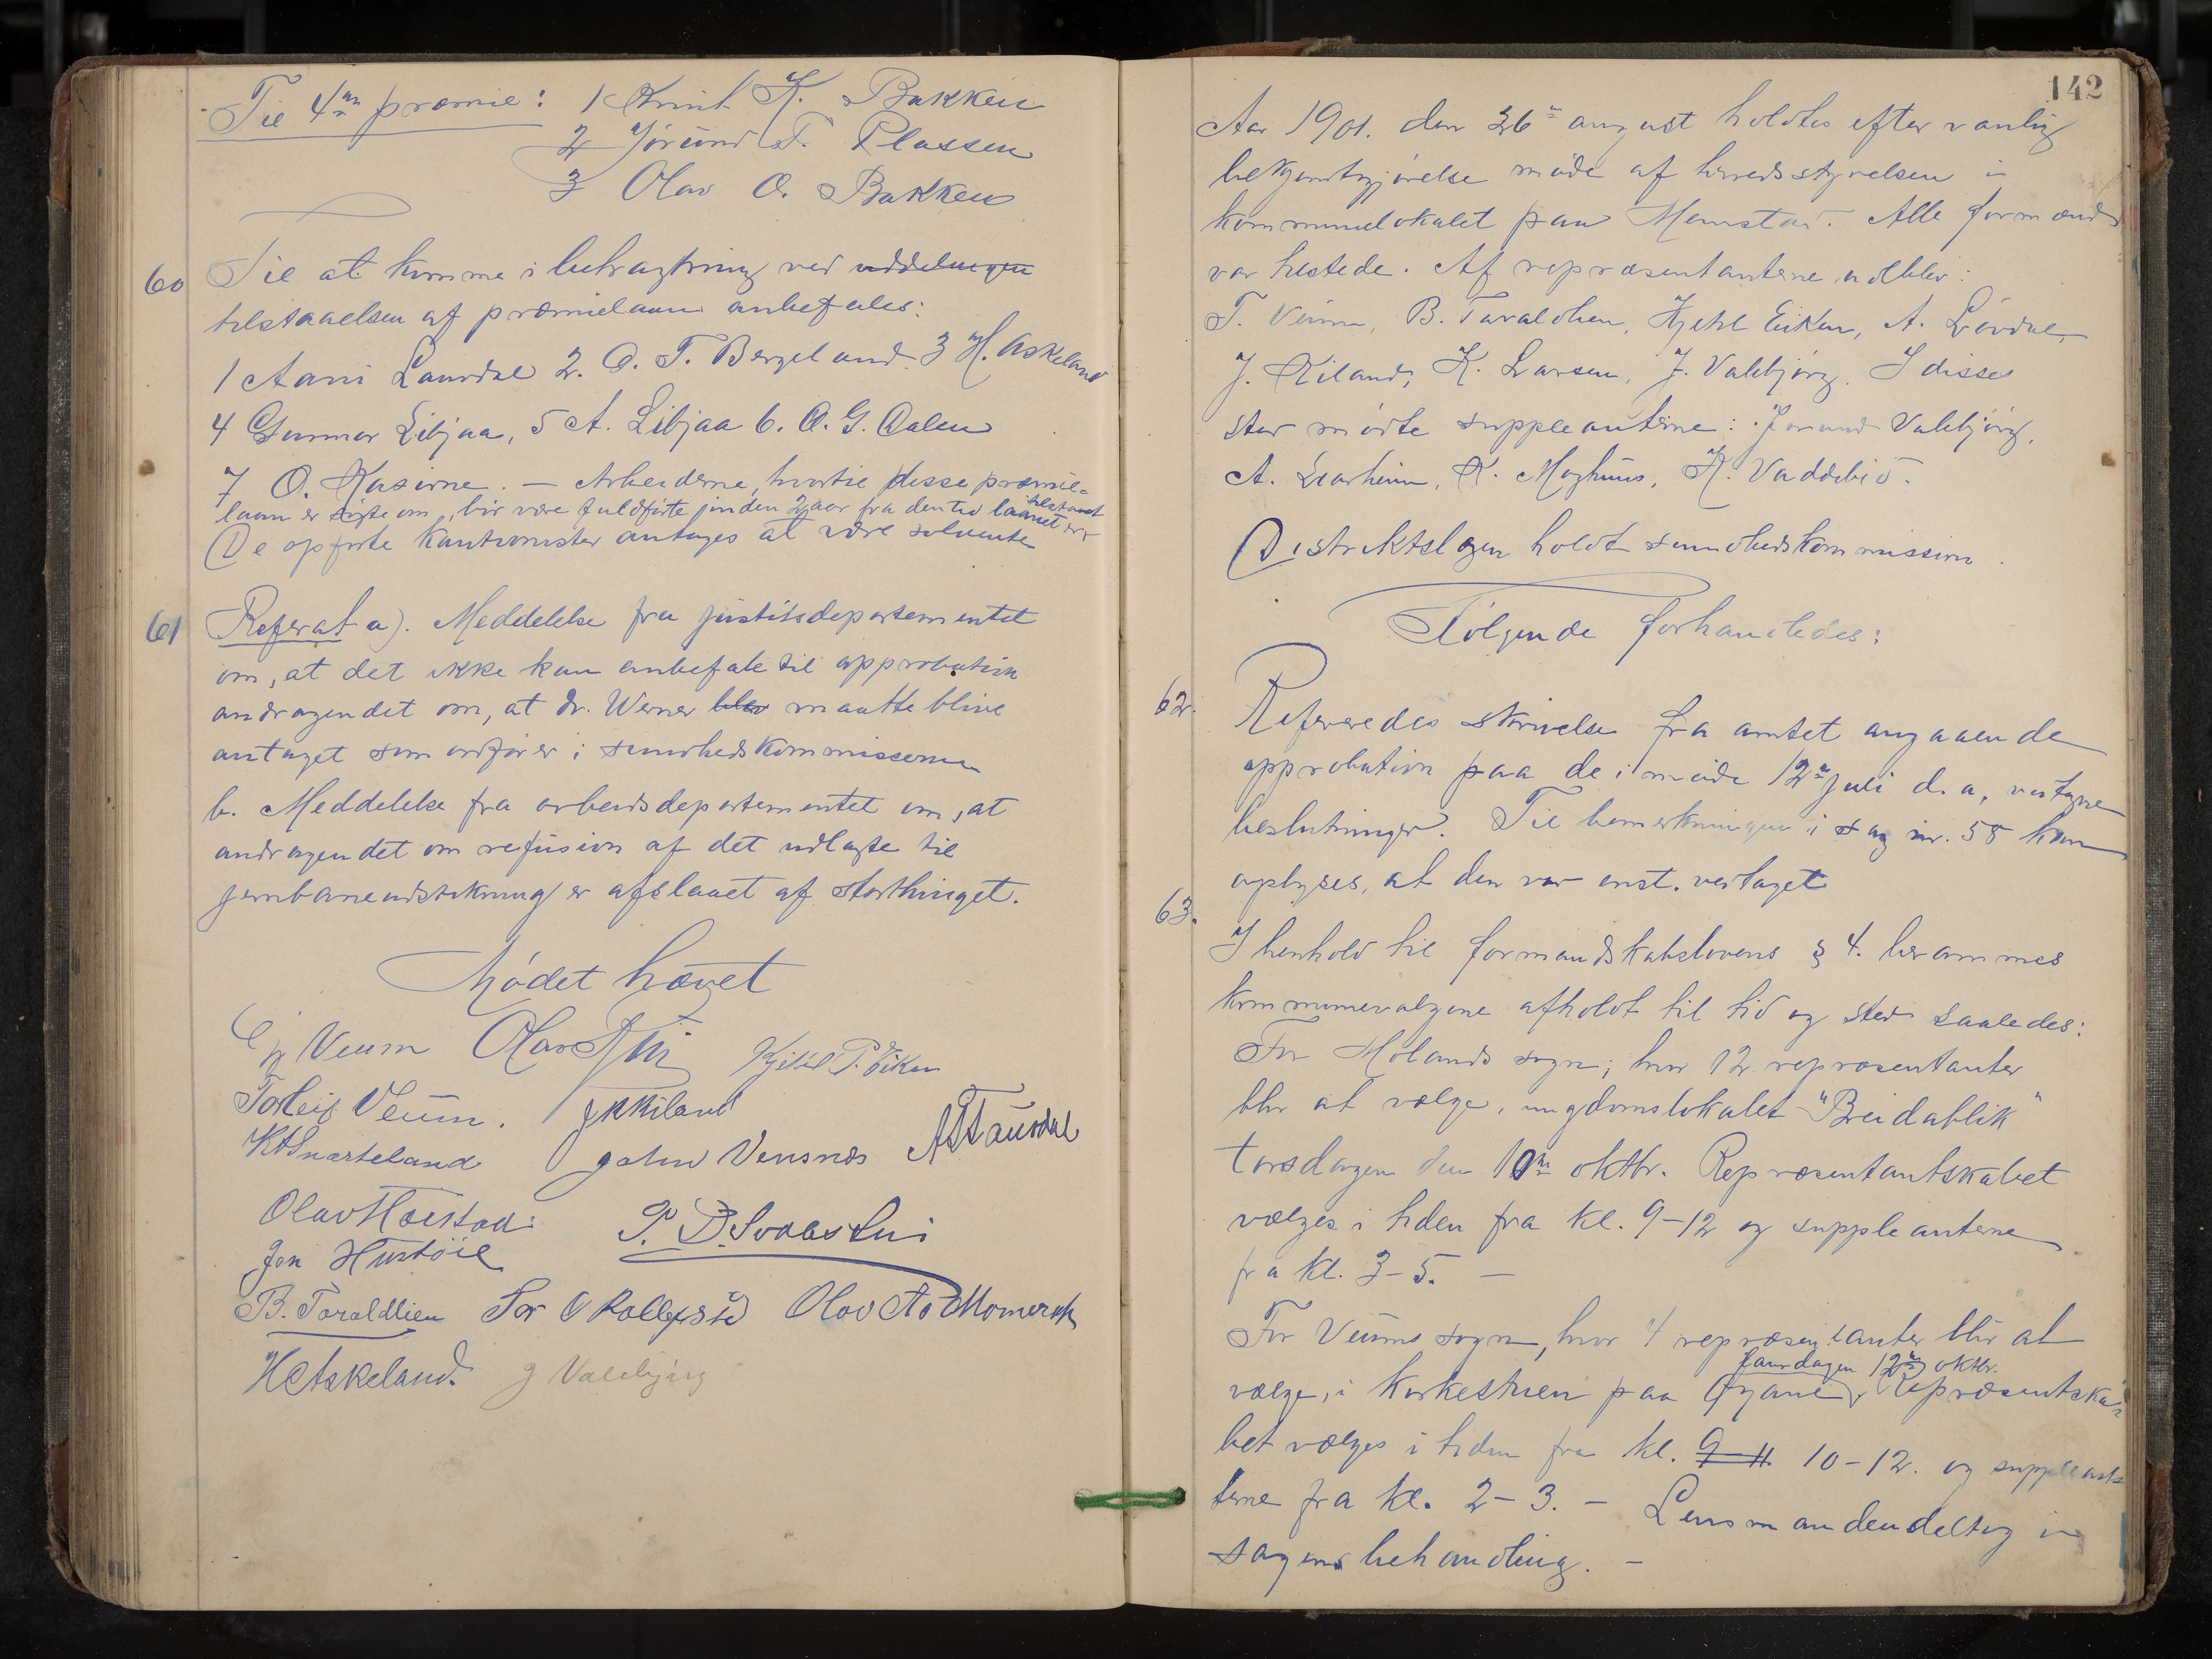 Til 4de præmie: 1 Knut K. Bakken
2 Jørund T. Plassen
3 Olav O. Bakken
60 Til at komme i betragtning ved uddelingen
tilstaaelsen af præmielaan anbefales:
1 Aani Laurdal 2. O. T. Bergeland. 3 H. Askeland
4 Gunnar Libjaa, 5 A. Libjaa 6. O. G. Dalen
7 O. Kasine. — Arbeiderne, hvortil disse præmie=
laan er søgte om, bør være fuldførte inden 2 aar fra den tid laanet er tilstaaet
De opførte kautionister antages at være solvente
61 Referat a). Meddelelse fra justitsdepartementet
om, at det ikke kan anbefale til approbation
andragendet om, at dr. Werner blev maatte blive
antaget som ordfører i sundhedskommissionen
b. Meddelelse fra arbeidsdepartementet om, at
andragendet om refusion af det udlagte til
jernbaneundsøkning er afslaaet af storthinget.
Mødet hævet
Veum Olav Kjetil P. Eiken
Torleif Veum. J K Kiland
K A Snarteland John Vensnes A T Laurdal
Olav Haustad P. D. Svalastui
Jon Hustøil
B. Taraldlien Tor O Rolleivstad Olav Aa Momrak
H Askeland. J Valebjørg
142
Aar 1901. den 26de august holdtes efter vanlig
bekjendtgjørelse møde af herredsstyrelsen i
kommunelokalet paa Momstad. Alle formænd
var tilstede. Af repræsentanterne udeblev:
T. Veum, B. Taraldlien, Kjetil Eiken, A. Løvdal,
J. Kiland, K. Larsen, J. Valebjørg. I disses
sted mødte suppleanterne: Jørund Valebjørg,
A. Liarheim, K. Moghuus, K. Vaddebiø.
Distriktslægen holdt sundhedskommission.
Følgende forhandledes:
62. Refereredes skrivelse fra amtet angaaende
approbation paa de i møde 12te juli d. a. vedtagne
beslutninger. Til bemerkningen i sag nr. 58 kan
oplyses, at den var enst. vedtaget
63. I henhold til formandskabslovens § 4. berammes
kommunevalgene afholdt til tid og sted saaledes:
For Molands sogn; hvor 12 repræsentanter
blir at vælge, ungdomslokalet "Breidablik"
torsdagen den 10de oktbr. Repræsentantskabet
vælges i tiden fra kl. 9-12 og suppleanterne
fra kl. 3-5. —
For Veums sogn, hvor 4 repræsentanter blir at
laurdagen 12te oktbr.
vælge, i kirkestuen paa Øyane. Repræsentska=
bet vælges i tiden fra kl. 9-11 10-12. og supplean=
terne fra kl. 2-3. — Lensmanden deltog i
sagens behandling. —